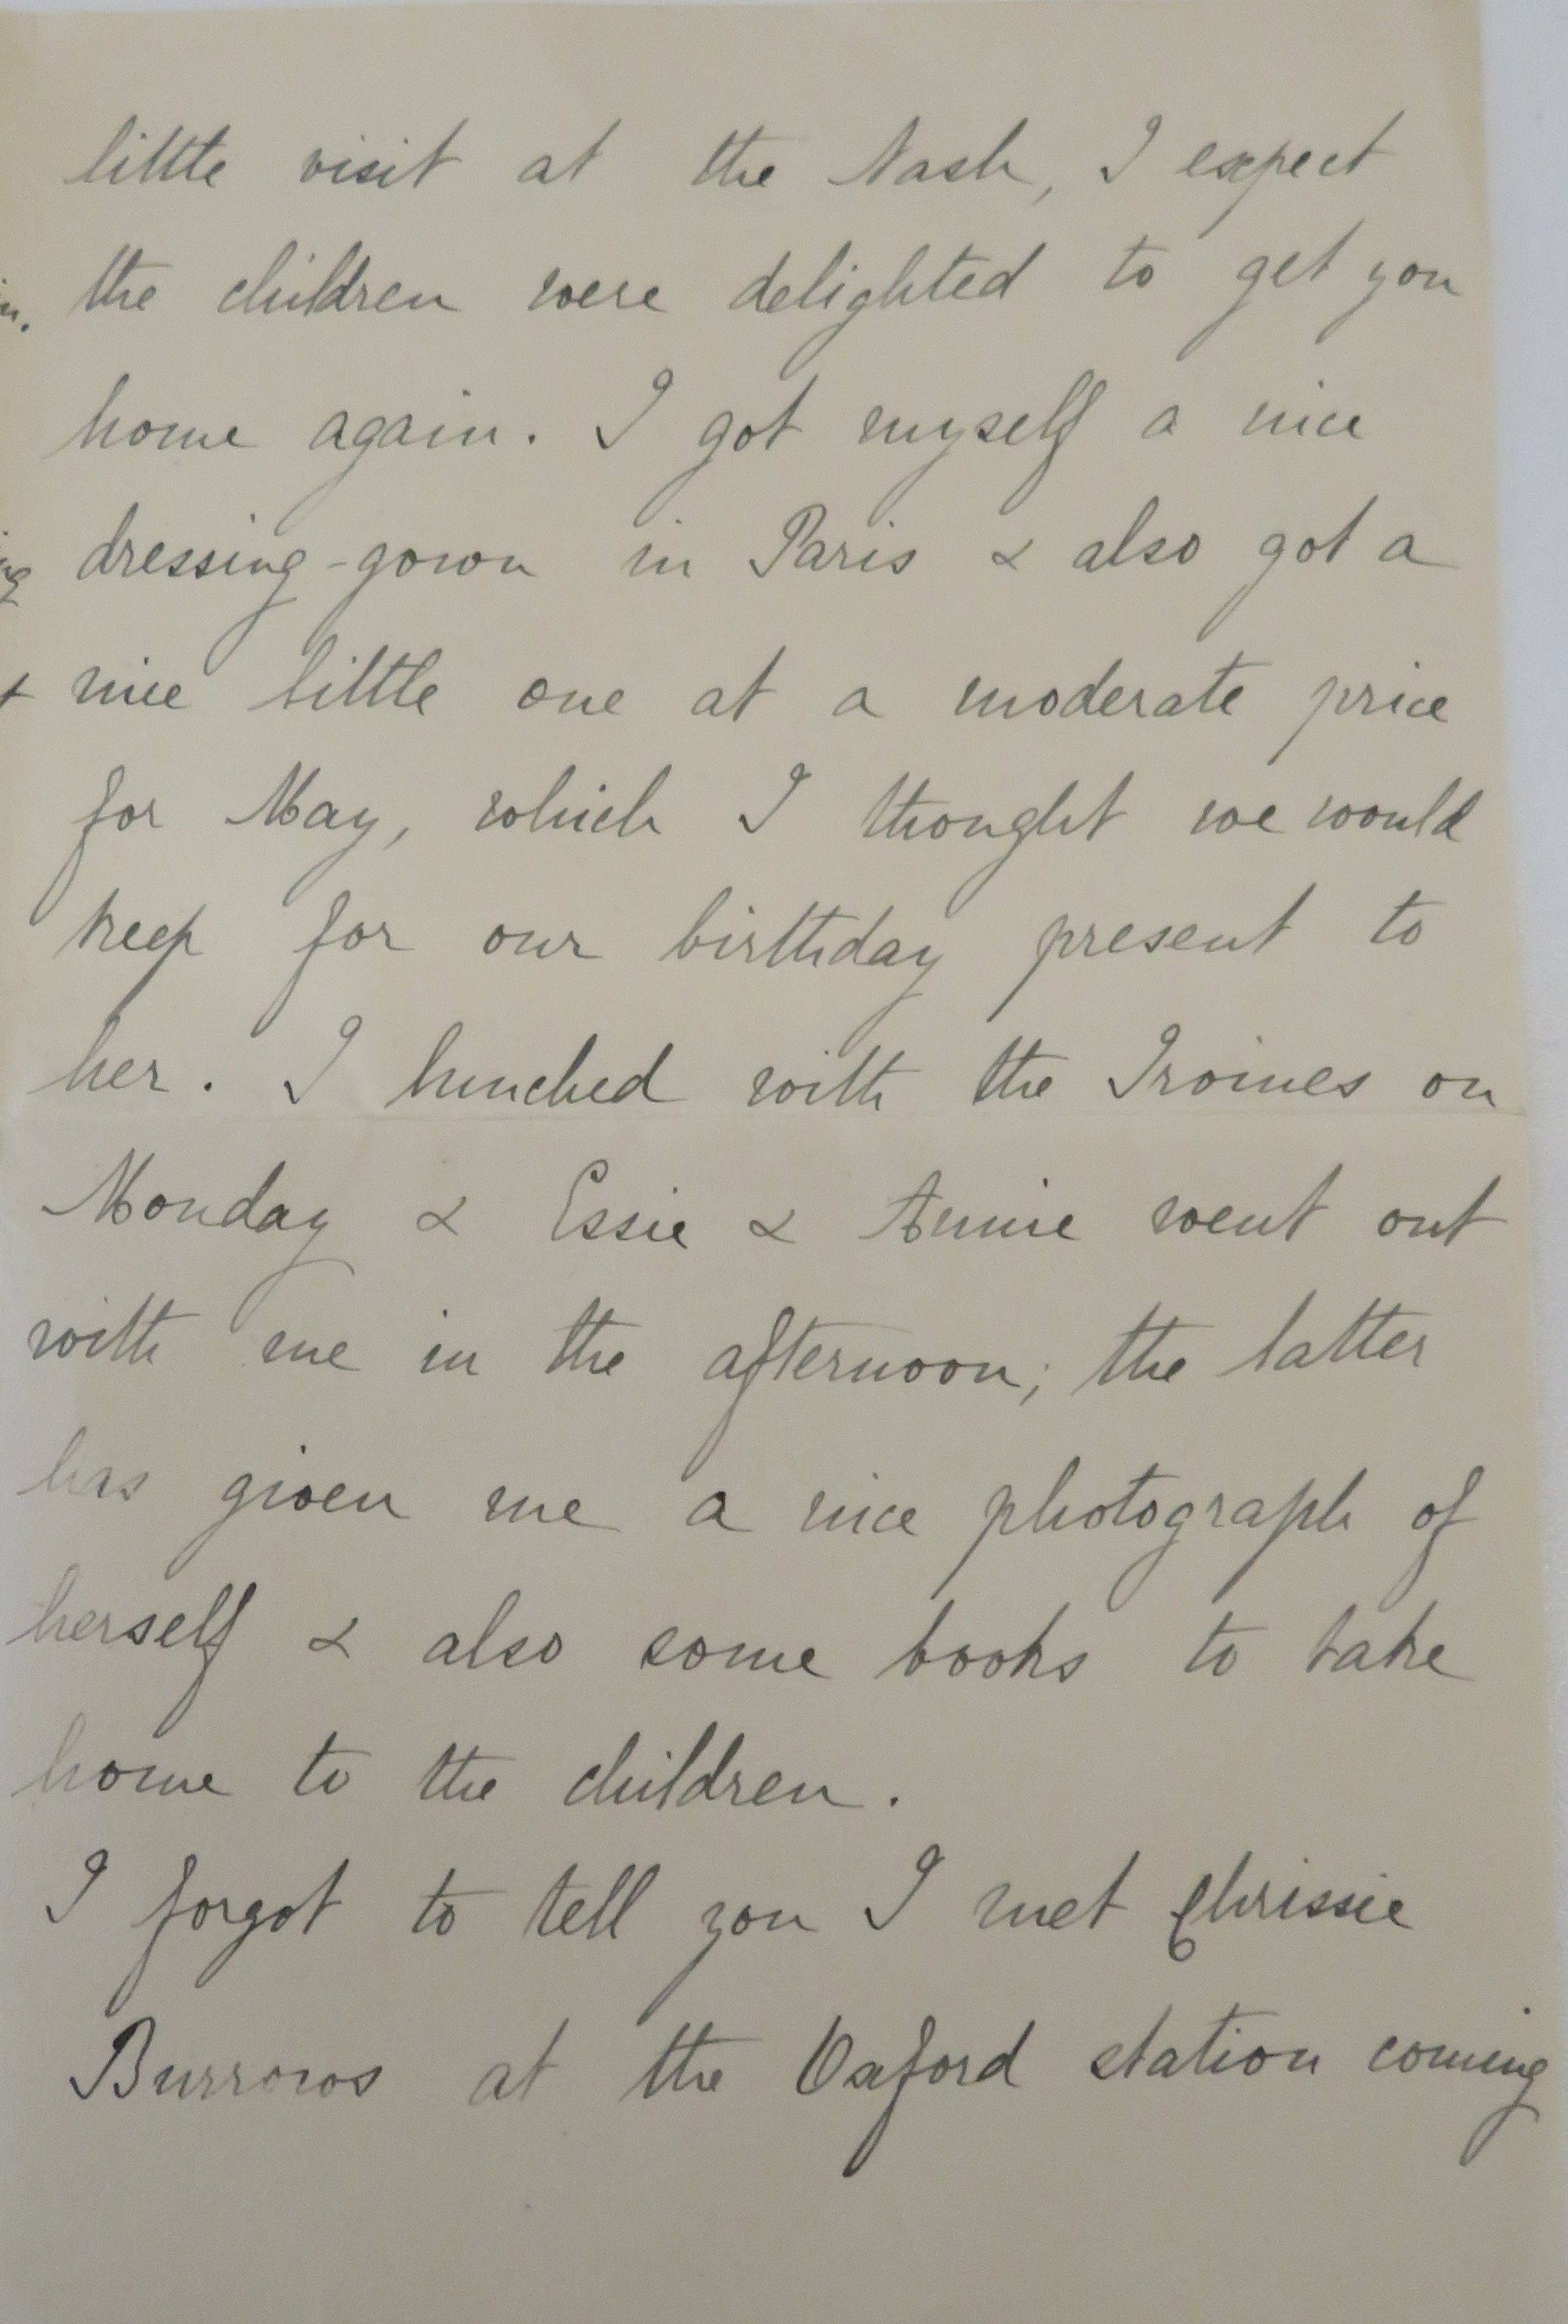 little visit at the Nash, I expect
the children were delighted to get you
home again. I got myself a nice
dressing-gown in Paris & also got a
nice little one at a moderate price
for May, which I thought we would
keep for our birthday present to
her. I lunched with the Irvines on
Monday & Essie & Annie went out
with me in the afternoon; the latter
has given me a nice photograph of
herself & also some books to take
home to the children.
I forgot to tell you I met Chrissie
Burrows at the Oxford station coming